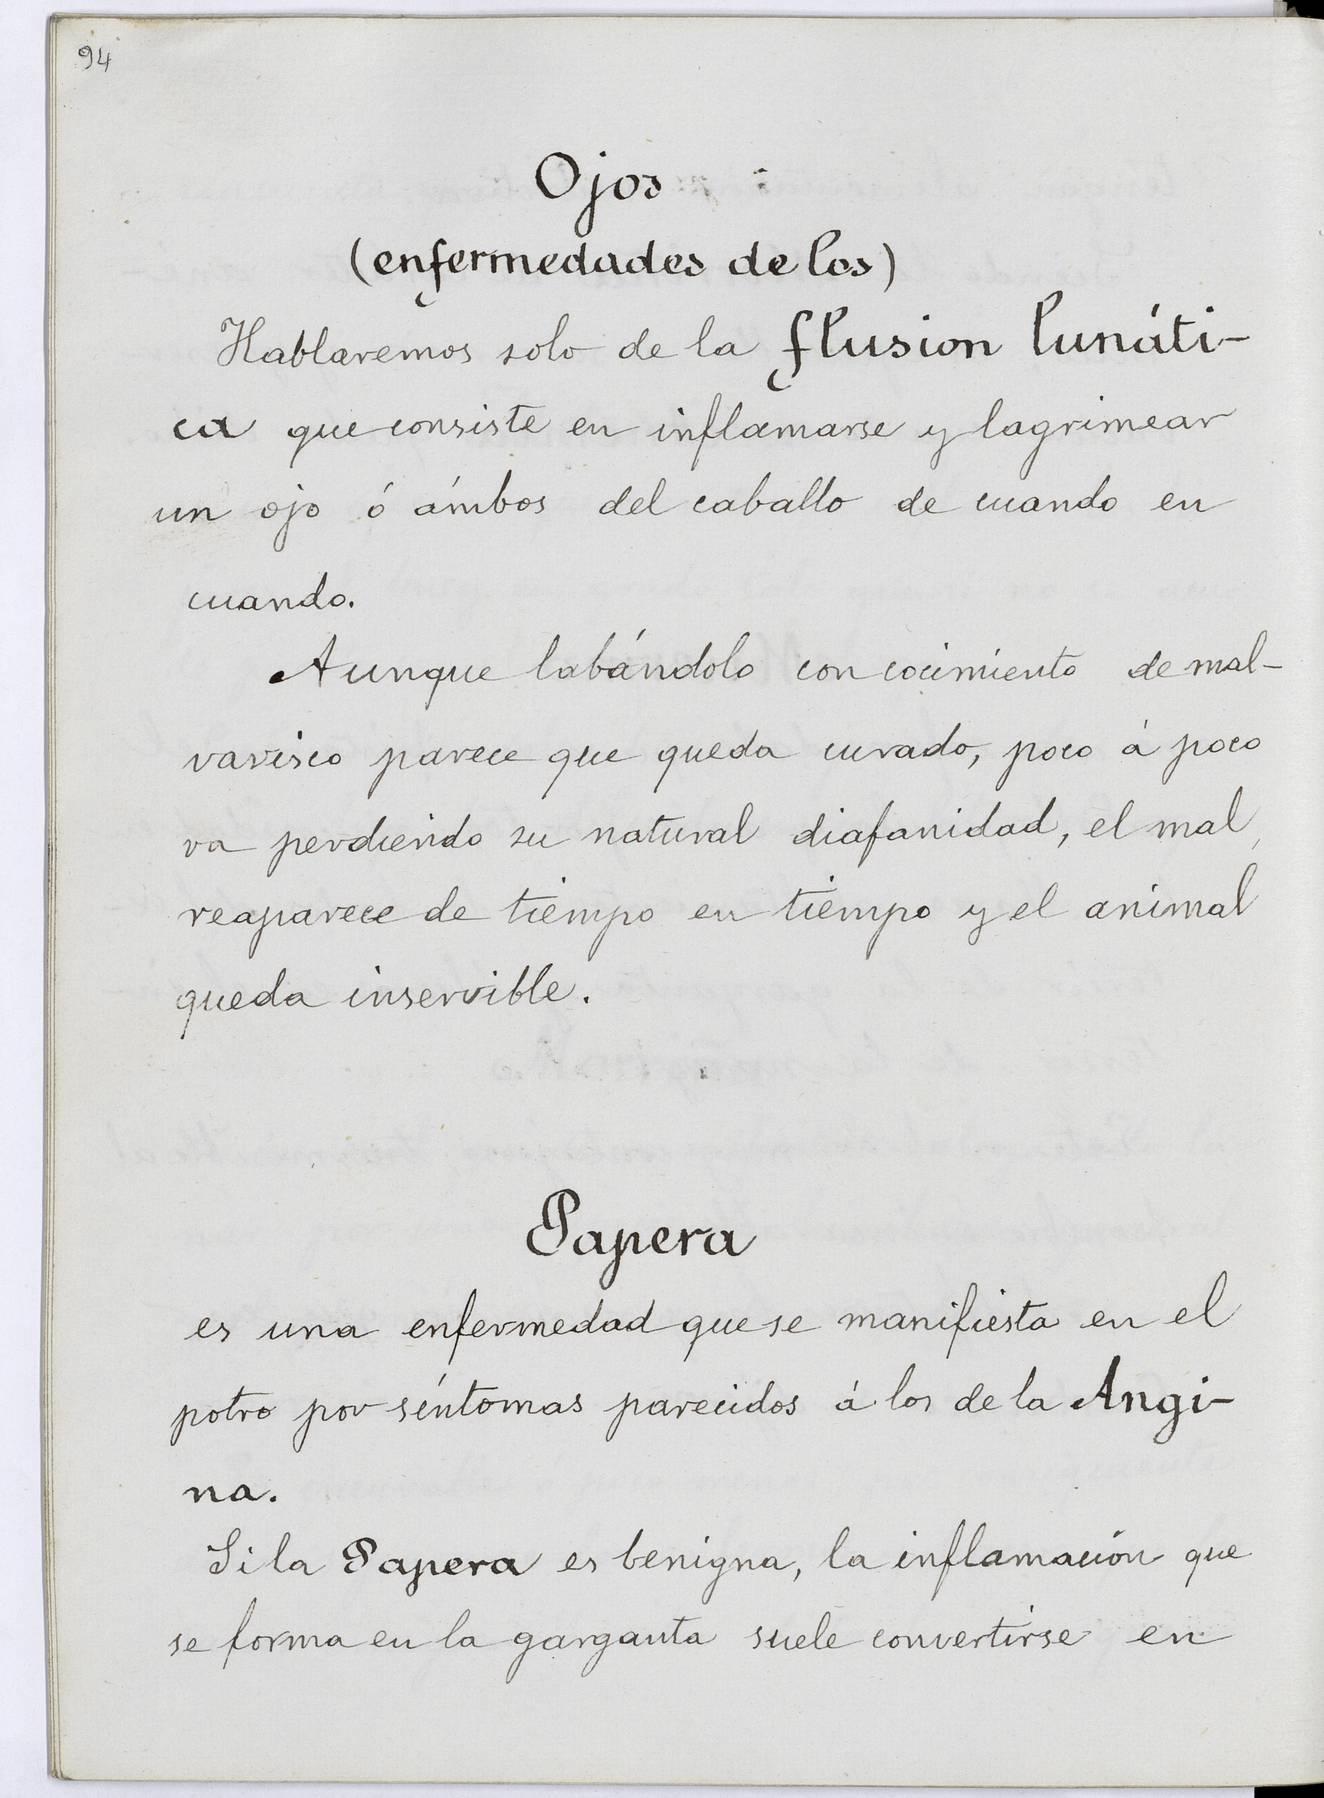 94
Ojos
(enfermedades de los)
Hablaremos solo de la flusion lunáti-
ca que consiste en inflamarse y lagrimear
un ojo ó ámbos del caballo de cuando en
cuando.
Aunque labándolo con cocimiento de mal-
varisco parece que queda curado, poco á poco
va perdiendo su natural diafanidad, el mal,
reaparece de tiempo en tiempo y el animal
queda inservible.
Papera
es una enfermedad que se manifiesta en el
potro por síntomas parecidos á los de la Angi-
na.
Si la Papera es benigna, la inflamación que
se forma en la garganta suele convertirse en